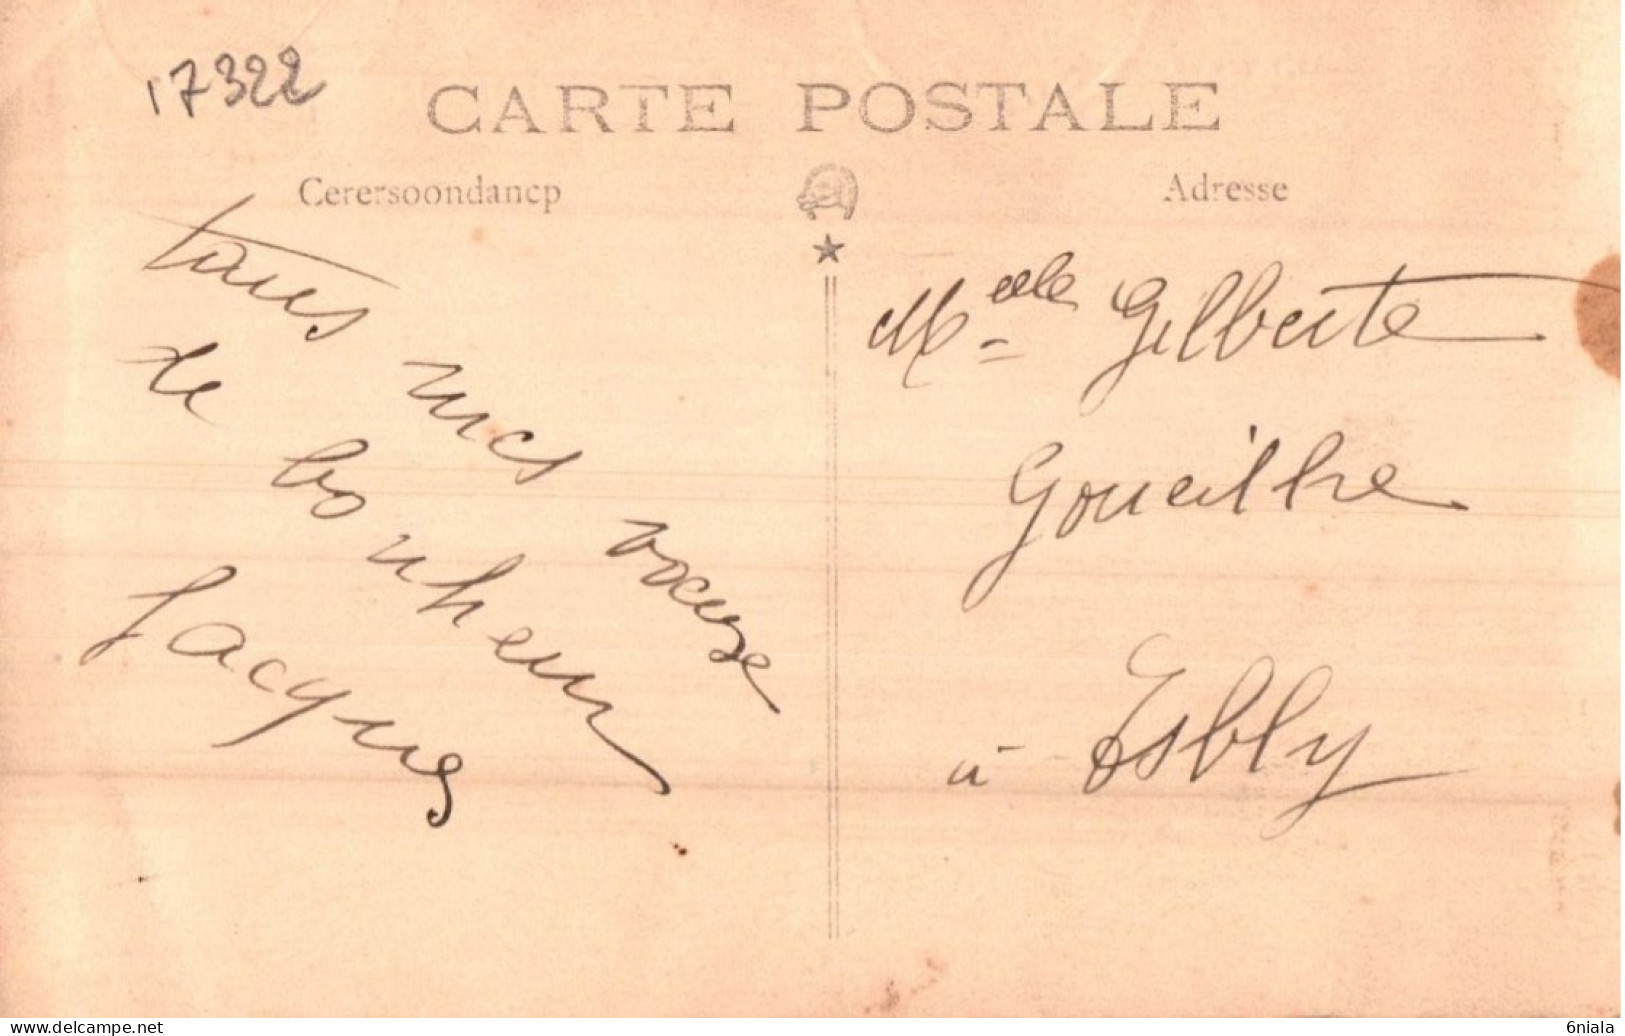 17322
CARTE POSTALE
Cerersoondancp
Adresse
tous mes voeux
de bonheur
Jacques
Melle Gilberte
Goueilhe
à Esbly
www.delcampe.net
6niala